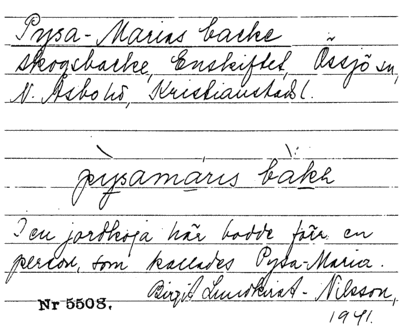 Pysa-Marias backe
skogsbacke, Enskiftet, Össjö sn,
N. Åsbo hd, Kristianstads l.
pỳsamaris bàkə
I en jordkoja här bodde förr en
person, som kallades Pysa-Maria.
Birgit Lundkvist-Nilsson,
Nr 5508.
1941.